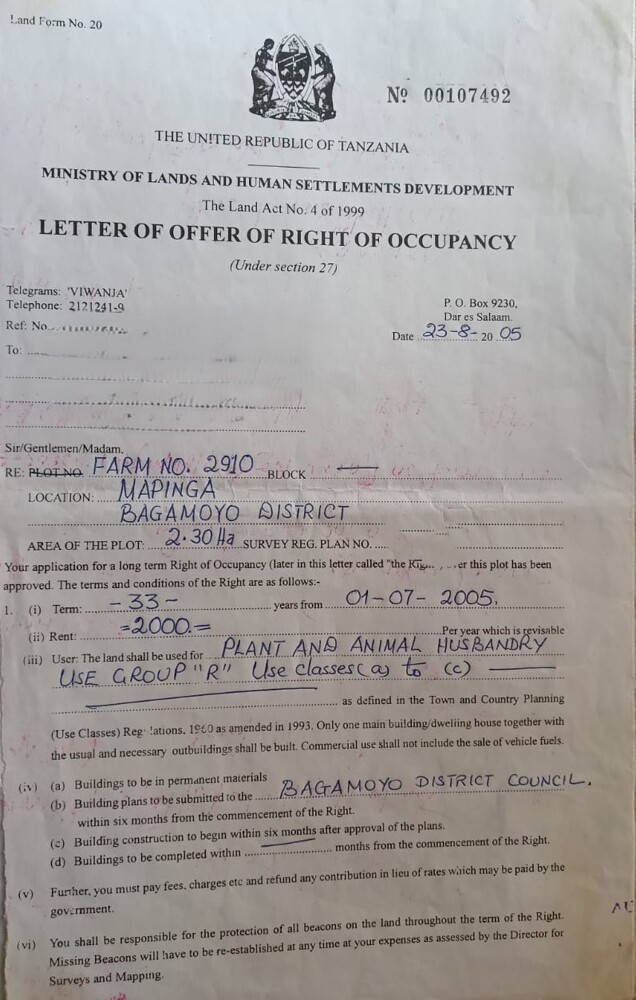 Land Form No. 20
Nº 00107492
THE UNITED REPUBLIC OF TANZANIA
MINISTRY OF LANDS AND HUMAN SETTLEMENTS DEVELOPMENT
The Land Act No. 4 of 1999
LETTER OF OFFER OF RIGHT OF OCCUPANCY
(Under section 27)
Telegrams: 'VIWANJA'
Telephone: 2121241-9
Ref: No.
P. O. Box 9230,
Dar es Salaam.
Date 23-8- 20 05
To:
Sir/Gentlemen/Madam,
RE: PLOT NO. FARM NO. 2910 BLOCK —
LOCATION: MAPINGA
BAGAMOYO DISTRICT
AREA OF THE PLOT: 2.30 Ha SURVEY REG. PLAN NO.
Your application for a long term Right of Occupancy (later in this letter called "the er this plot has been
approved. The terms and conditions of the Right are as follows:-
1. (i) Term: - 33 - years from 01-07- 2005.
(ii) Rent: =2000.= Per year which is revisable
(iii) User: The land shall be used for PLANT AND ANIMAL HUSBANDRY
USE GROUP "R" Use classes (a) to (c) —
as defined in the Town and Country Planning
(Use Classes) Regulations, 1960 as amended in 1993. Only one main building/dwelling house together with
the usual and necessary outbuildings shall be built. Commercial use shall not include the sale of vehicle fuels.
(iv) (a) Buildings to be in permanent materials
(b) Building plans to be submitted to the BAGAMOYO DISTRICT COUNCIL.
within six months from the commencement of the Right.
(c) Building construction to begin within six months after approval of the plans.
(d) Buildings to be completed within months from the commencement of the Right.
(v) Further, you must pay fees, charges etc and refund any contribution in lieu of rates which may be paid by the
government.
(vi) You shall be responsible for the protection of all beacons on the land throughout the term of the Right.
Missing Beacons will have to be re-established at any time at your expenses as assessed by the Director for
Surveys and Mapping.